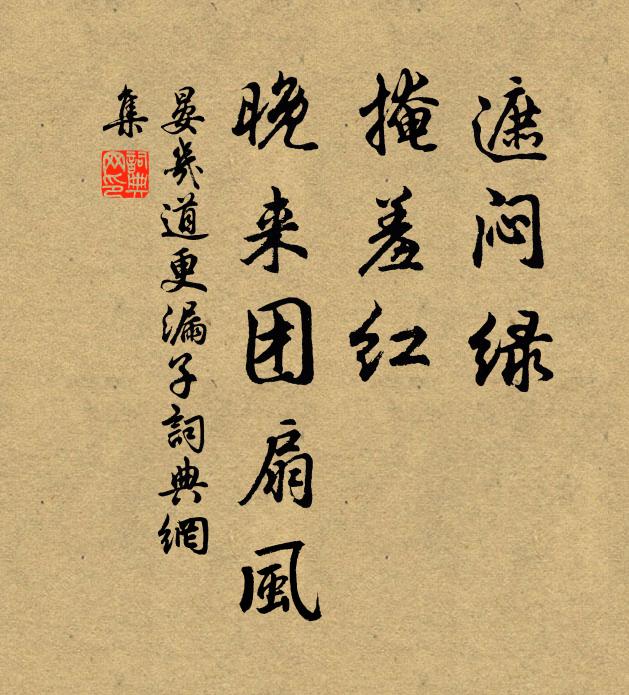 遮闷绿
掩羞红
晚来团扇風
晏幾道更漏子詞典網
集
詞典
网印